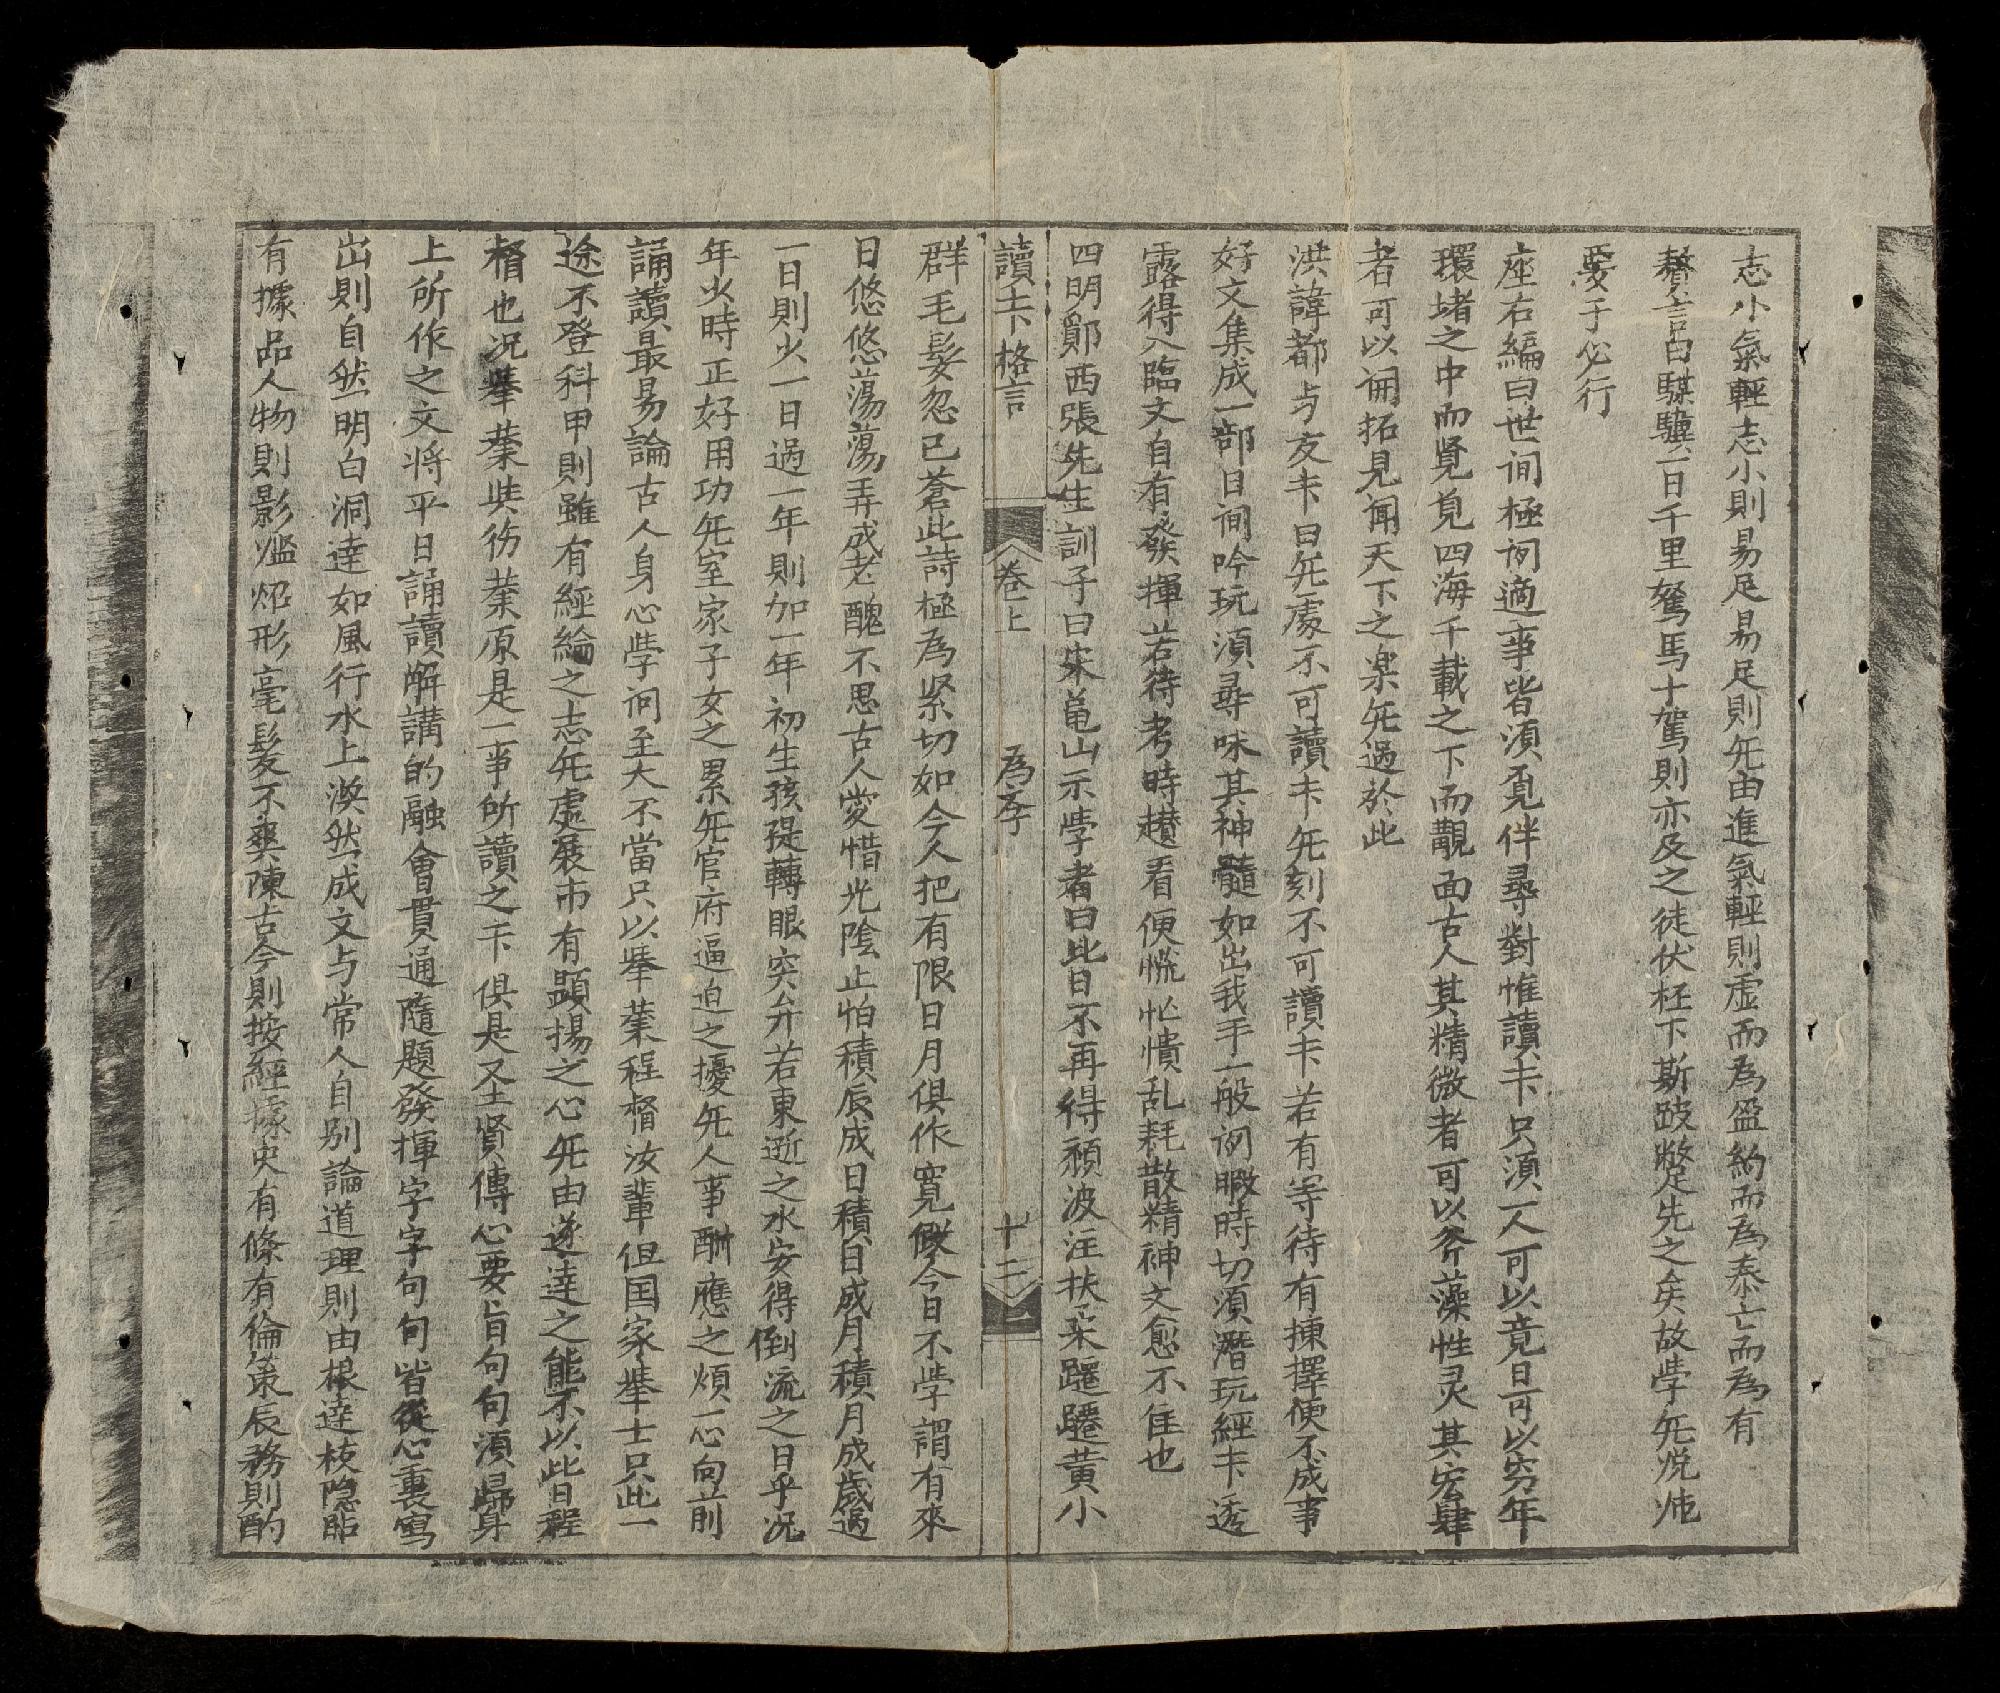 志小氣輕志小則易足易足則旡由進氣輕則虛而為盈約而為泰亡而為有
贅言曰騏驥一日千里駑馬十駕則亦及之徒伏枉下斯跛鱉足先之矣故學旡悦
要于必行
座右編曰世间極闲適事皆須覔伴尋對惟讀卡只須一人可以竟日可以穷年
環堵之中而覽見四海千載之下而覿面古人其精微者可以斧藻性灵其宏肆
者可以闹拓見闻天下之楽旡過於此
洪諱都与友卡曰旡處不可讀卡旡刻不可讀卡若有等待有揀擇便不成事
好文集成一部日间吟玩須尋味其神髓如出我手一般闲暇時切須潛玩經卡透
露得入臨文自有發揮若待考時趲看便慌忙憒乱耗散精神文愈不佳也
四明鄭西張先生訓子曰宋龟山示學者曰此日不再得頹波注扶桑躚躚黄小
讀卡格言 卷上 為斈 十二
群毛髮忽已蒼此詩極為紧切如今人把有限日月俱作寛假今日不學謂有來
日悠悠蕩蕩弄成老醜不思古人愛惜光陰止怕積辰成日積日成月積月成歲過
一日則少一日過一年則加一年初生孩提轉眼突弁若東逝之水安得倒流之日乎况
年少時正好用功旡室家子女之累旡官府逼迫之擾旡人事酬應之煩一心向前
誦讀最易論古人身心學问至大不當只以举業程督汝輩但国家举士只此一
途不登科甲則雖有經綸之志旡處展市有顕揚之心旡由遂達之能不以此日程
督也况举業與徳業原是一事所讀之卡俱是圣賢傳心要旨句句須歸身
上所作之文将平日誦讀解講的融會貫通隨題發揮字字句句皆從心裏寫
出則自然明白洞達如風行水上涣然成文与常人自别論道理則由根達枝隐
有據品人物則影鑑炤形毫髮不爽陳古今則按經據史有條有倫策辰務則酌